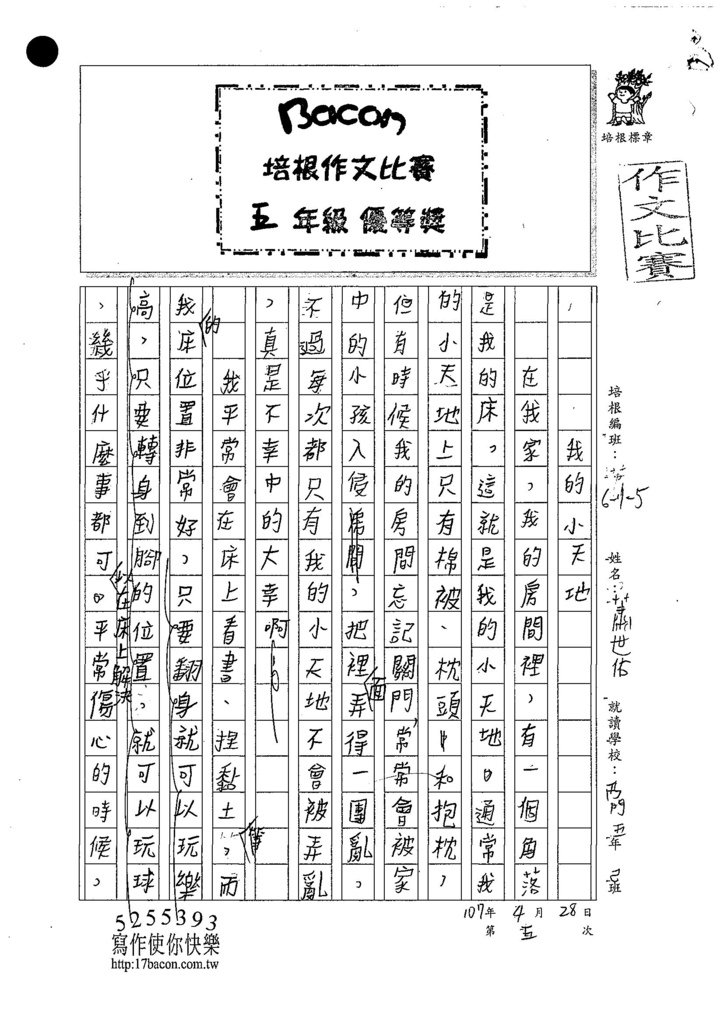 Bacon
培根作文比賽
五年級 優等獎
培根標章
作文比賽
培根編班：
6-1-5
姓名：
世佑
就讀學校：西門 五年 己班
107年 4月 28日
第 五 次
我的小天地
在我家，我的房間裡，有一個角落
是我的床，這就是我的小天地。通常我
的小天地上只有棉被、枕頭和抱枕，
但有時候我的房間忘記關門，常常會被家
中的小孩入侵房間，把裡面弄得一團亂，
不過每次都只有我的小天地不會被弄亂
，真是不幸中的大幸啊！
我平常會在床上看書、捏黏土等，而
我的床位置非常好，只要翻身就可以玩樂
高，只要轉身到腳的位置，就可以玩球
，幾乎什麼事都可以在床上解決。平常傷心的時候，
5255393
寫作使你快樂
http:17bacon.com.tw